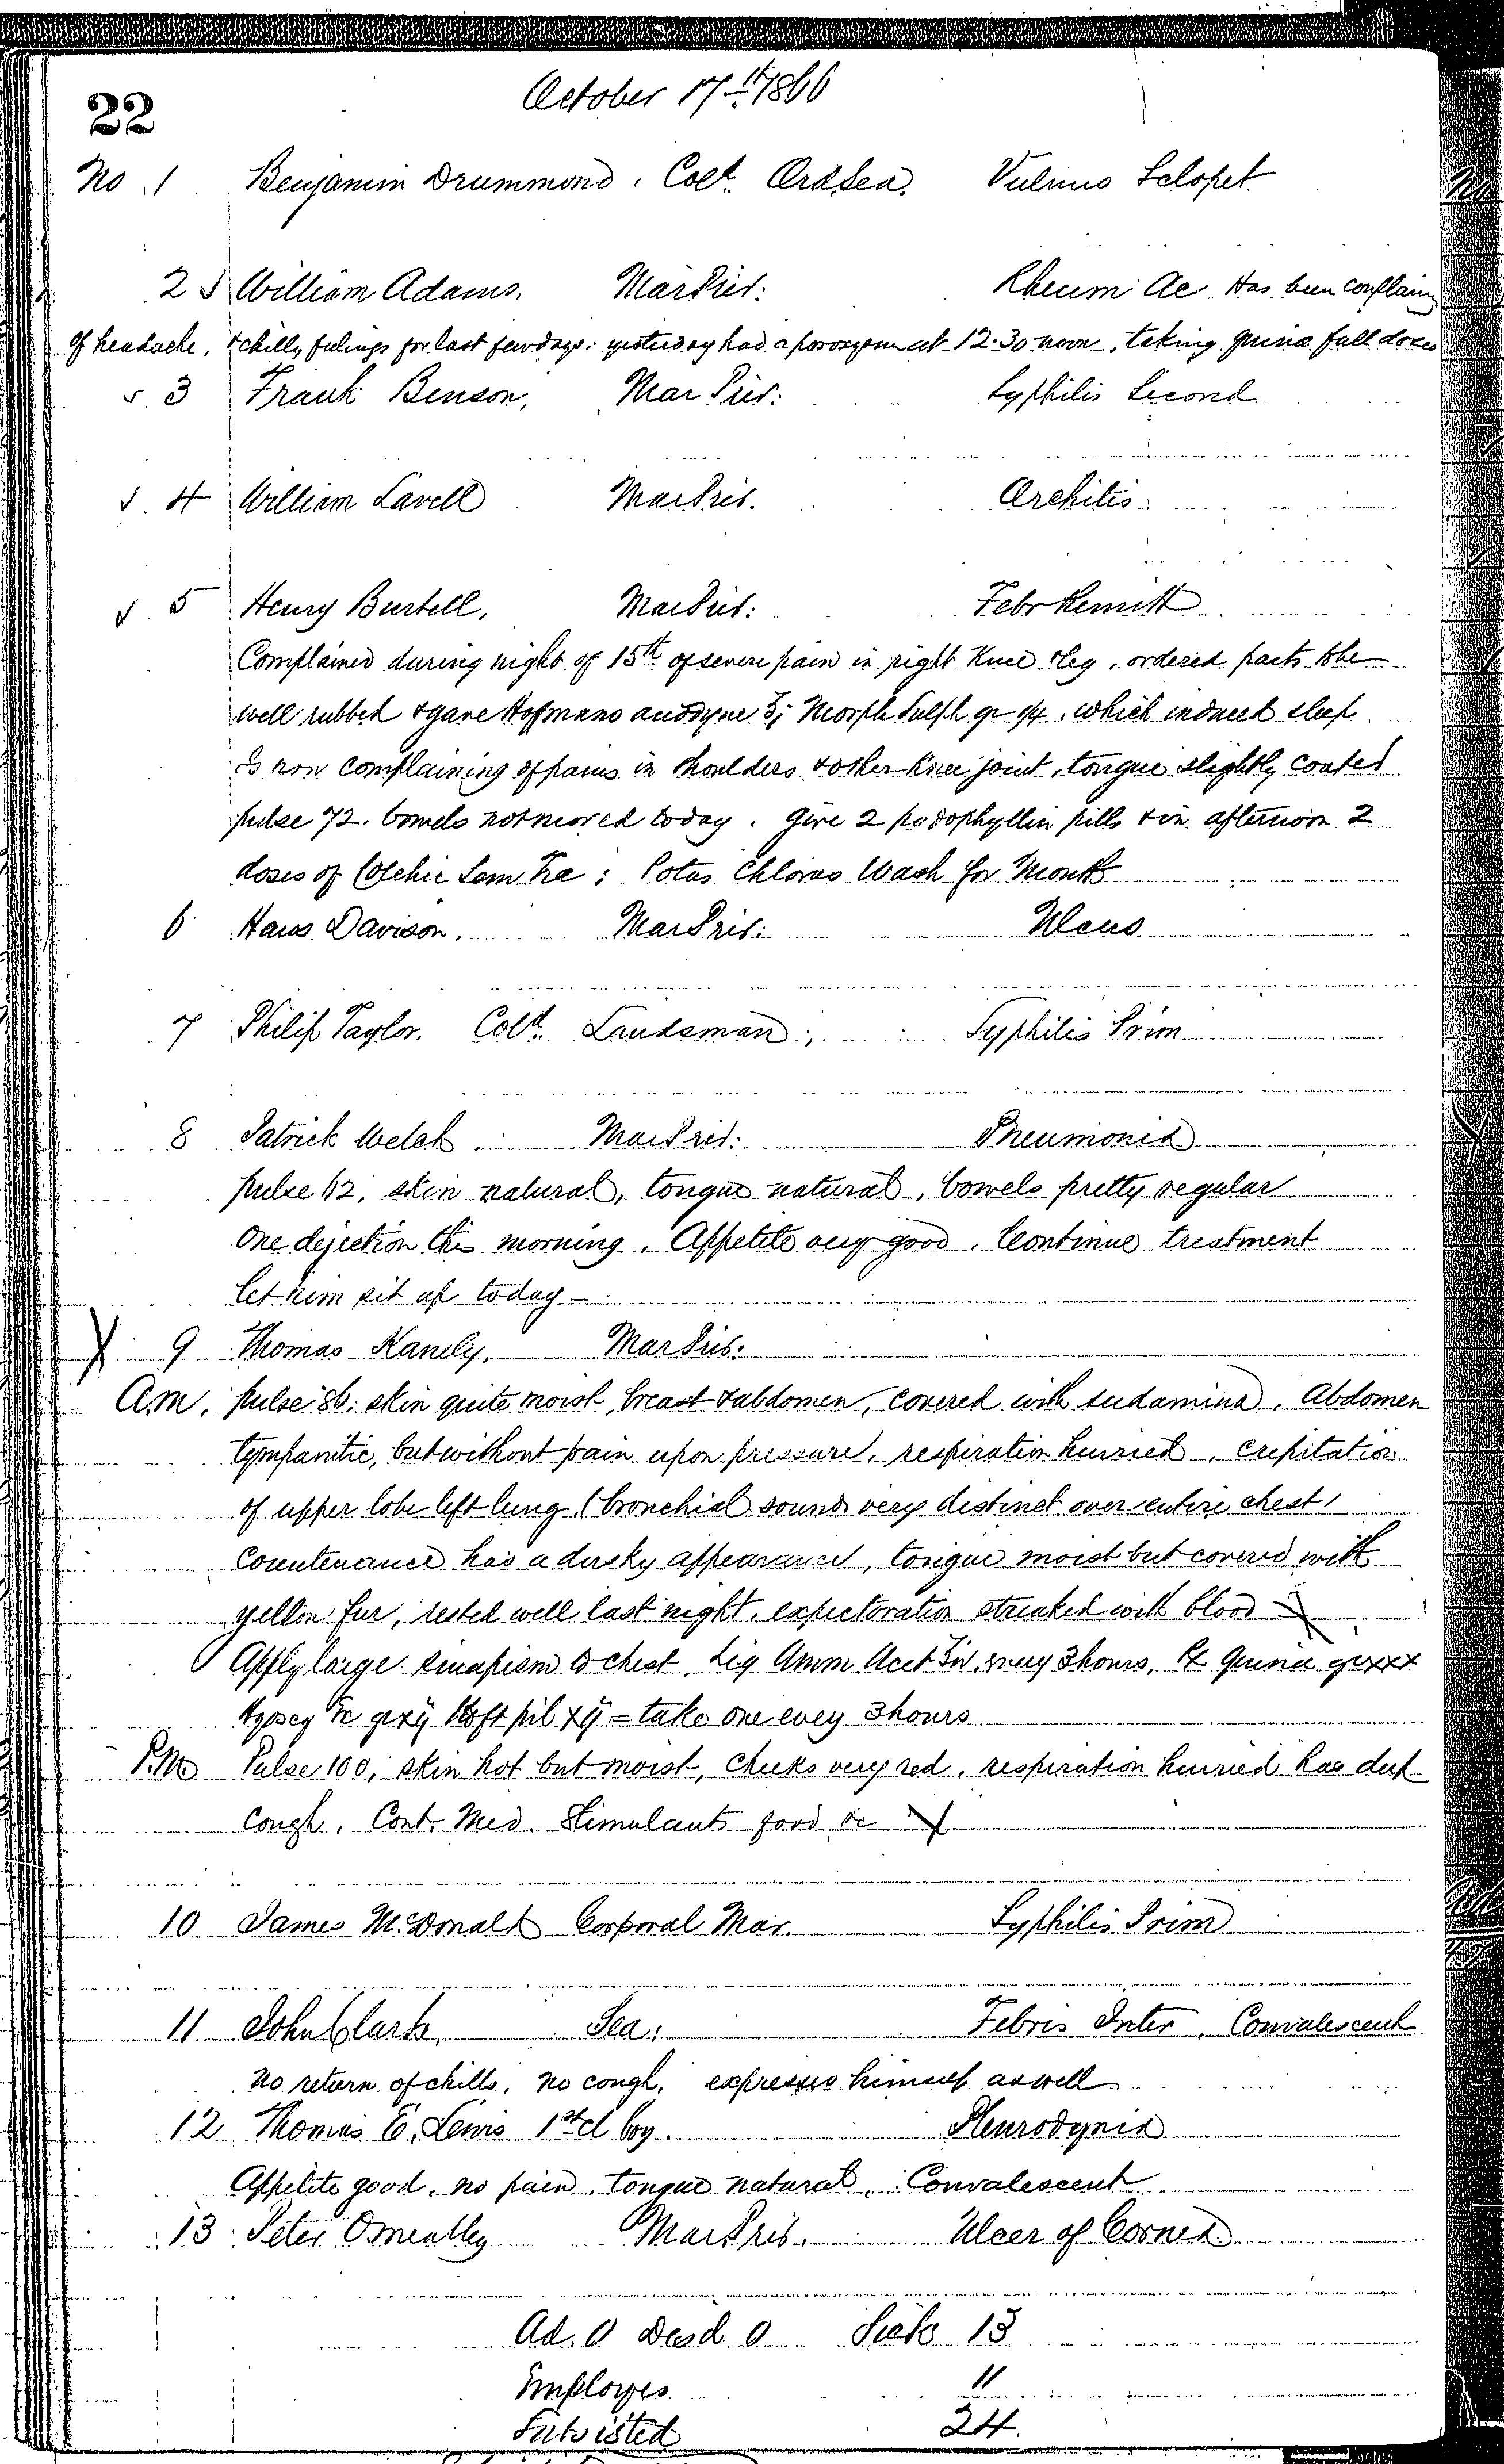 October 17th 1866
22
No 1 Benjamin Drummond, Cold. Ord Sea. Vulnus Sclopet
2 William Adams. Mar Priv: Rheum Ac Has been complaing
of headache, & chilly feelings for last few days. yesterday had a paroxysm at 12.30 noon, taking quina full doses
3 Frank Benson, Mar Priv: Syphilis Second
4 William Lavell Mar Priv. Orchitis
5 Henry Burtell, Mar Priv: Febr Remitt
Complained during night of 15th of severe pain in right Knee & leg, ordered parts to be
well rubbed & gave Hofmans anodyne ʒj Morph Sulph gr 1/4, which induced sleep
Is now complaining of pains in shoulders & other Knee joint, tongue slightly coated
pulse 72. bowels not moved today. Give 2 podophyllin pills & in afternoon 2
doses of Colchic Sem Tra; Potas Chloras Wash for Mouth
6 Hans Davison. Mar Priv: Ulcus
7 Philip Taylor. Cold. Landsman; Syphilis Prim
8 Patrick Welch. Mar Priv: Pneumonia
pulse 62, skin natural, tongue natural, bowels pretty regular
One dejection this morning. Appetite very good. Continue treatment
let him sit up today—
9 Thomas Kanely. Mar Priv.
A.M. pulse 86. skin quite moist, breast & abdomen, covered with sudamina, Abdomen
tympanitic, but without pain upon pressure, respiration hurried, crepitation
of upper lobe left lung, (bronchial sounds very distinct over entire chest)
Countenance has a dusky appearance, tongue moist but covered with
yellow fur, rested well last night, expectoration streaked with blood
Apply large sinapism to chest, Liq Amm Acet ʒiv, every 3 hours, Rx Quinia grxxx
Hyoscy Ex grxij ft pil xij = take one evey 3 hours
P.M. Pulse 100, skin hot but moist, cheeks very red, respiration hurried has deep
cough, Cont. Med. Stimulants food &c
10 James McDonald Corporal Mar. Syphilis Prim
11 John Clark. Sea: Febris Inter, Convalescent
No return of chills, no cough, expresses himself as well
12 Thomas E. Lewis 1st cl boy. Pleurodynia
Appetite good, no pain, tongue natural, Convalescent
13 Peter Omealley Mar Priv. Ulcer of Cornea
Ad. 0 Desd 0 Sick 13
Employes 11
Subsisted 24.